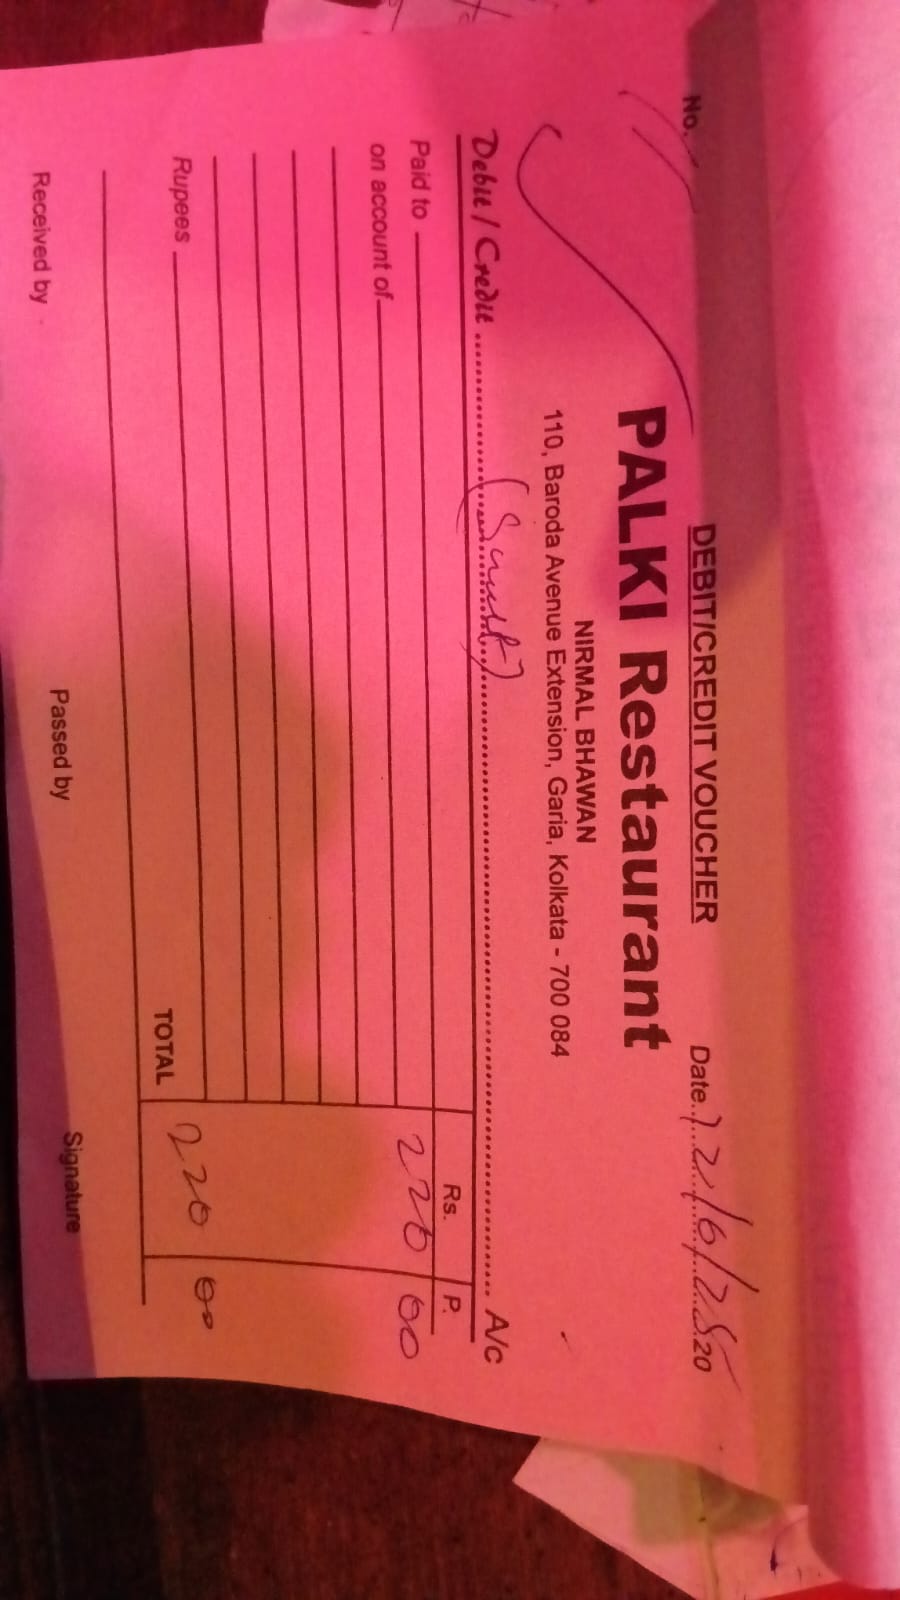 DEBIT/CREDIT VOUCHER
No. Date 22/6/25 20
PALKI Restaurant
NIRMAL BHAWAN
110, Baroda Avenue Extension, Garia, Kolkata - 700 084
Debit / Credit A/c
Rs. P.
Paid to 220 00
on account of
Rupees TOTAL 220 00
Received by Passed by Signature